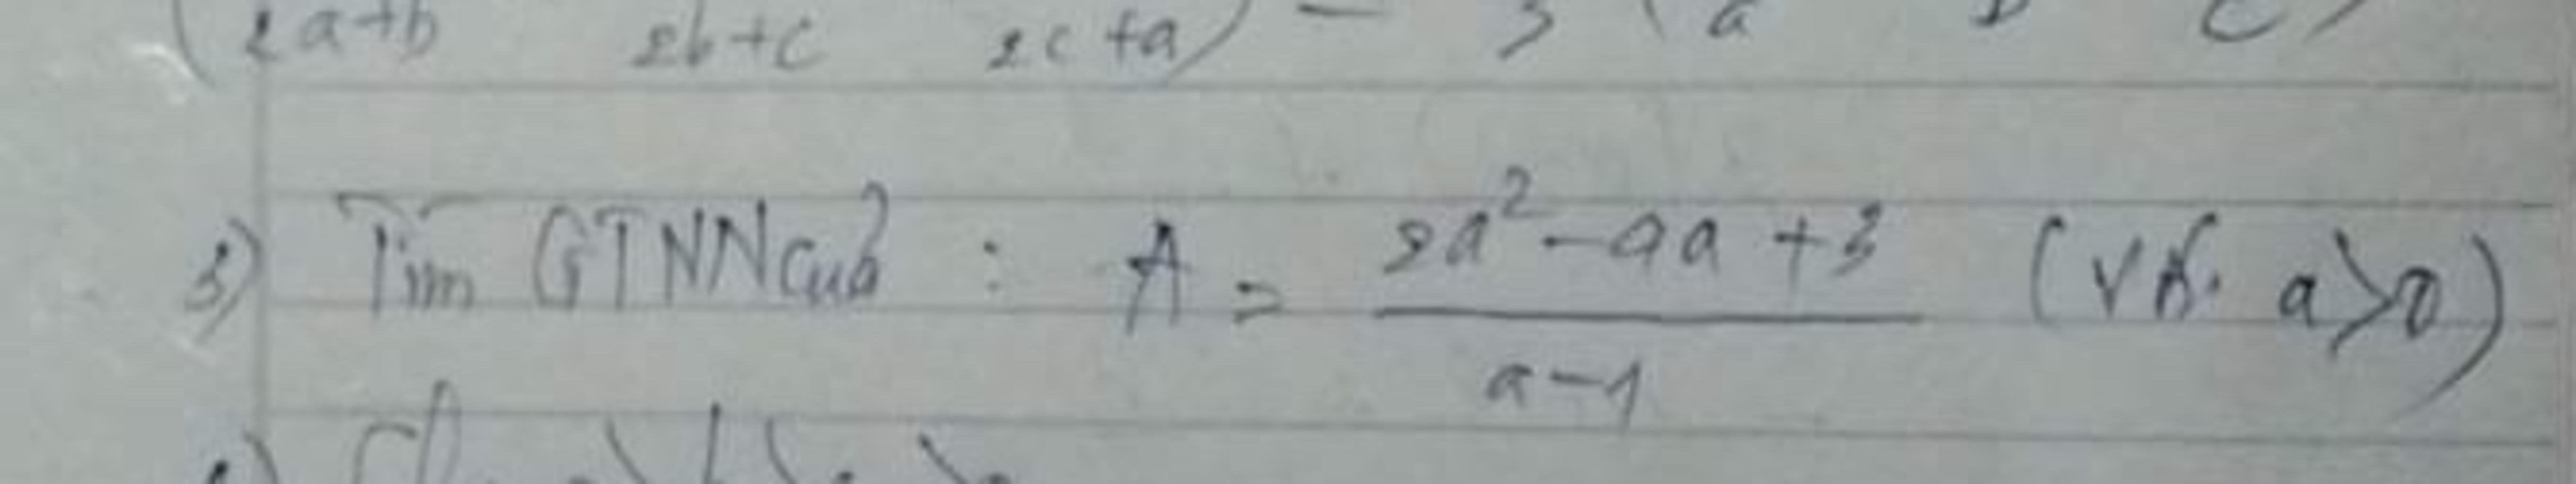 2a+b 2b+c 2c+a) - 3 ( a b c )
3) Tìm GTNN của : A = (2a² - aa + 3) / (a - 1) (VN. a > 0)